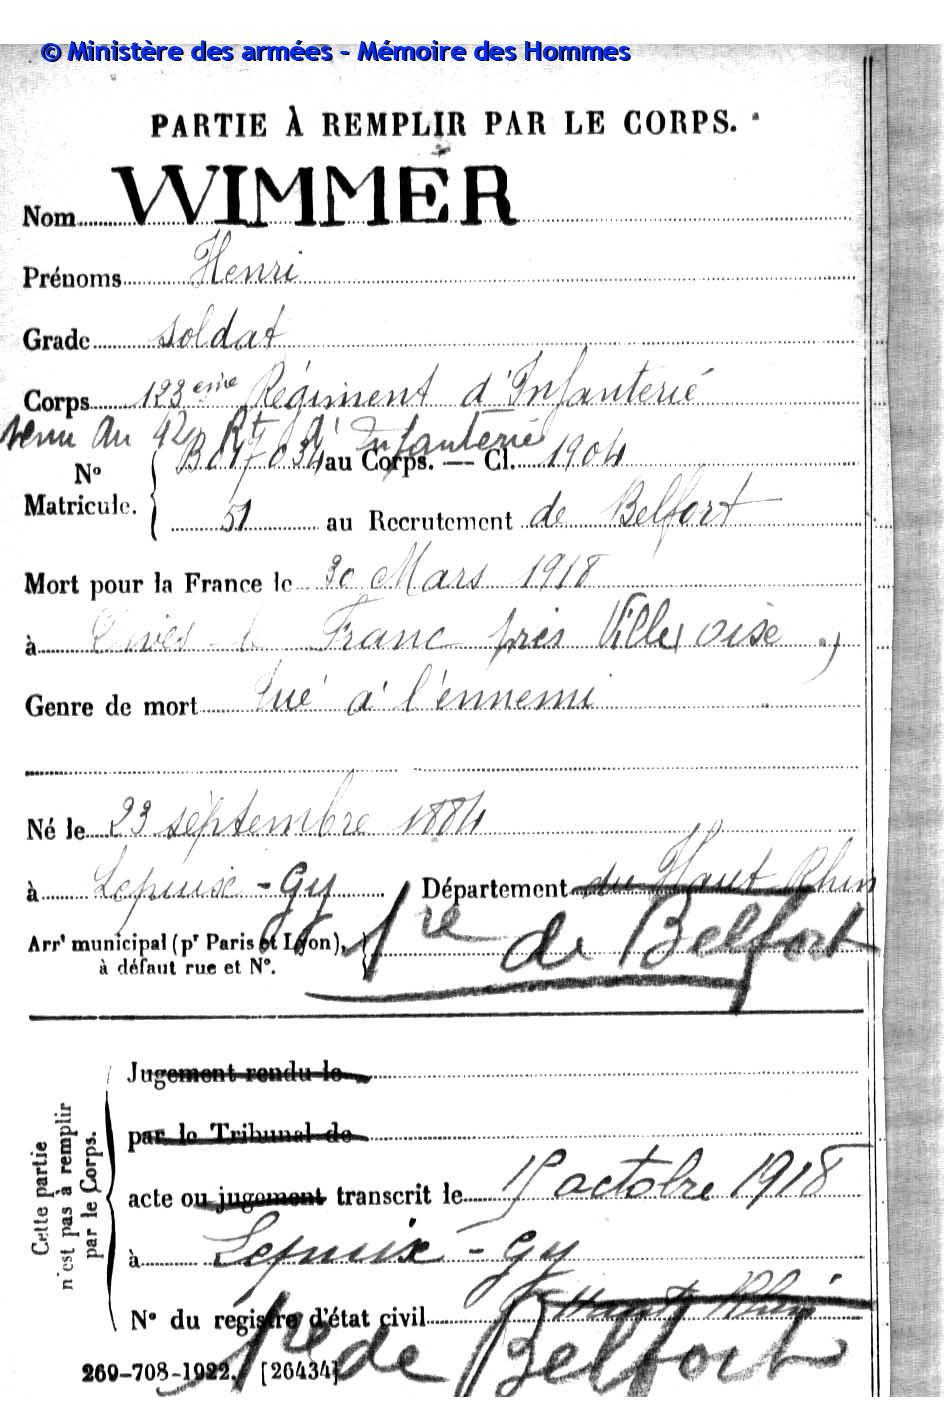 © Ministère des armées - Mémoire des Hommes
PARTIE À REMPLIR PAR LE CORPS.
Nom WIMMER
Prénoms Henri
Grade soldat
Corps 123eme Régiment d'Infanterie
venu du 42 Rt d'Infanterie
N° Matricule. { B017034 au Corps. — Cl. 1904
51 au Recrutement de Belfort
Mort pour la France le 30 Mars 1918
à le Franc près Ville oise )
Genre de mort tué à l'ennemi
Né le 23 septembre 1884
à Lepuix-Gy Département du Haut Rhin
Arrt municipal (pr Paris et Lyon), } Tre de Belfort
à défaut rue et N°.
Cette partie n'est pas à remplir par le Corps.
Jugement rendu le
par le Tribunal de
acte ou jugement transcrit le 15 octobre 1918
à Lepuix-Gy
Haut Rhin
N° du registre d'état civil
Tre de Belfort
269-708-1922. [26434]